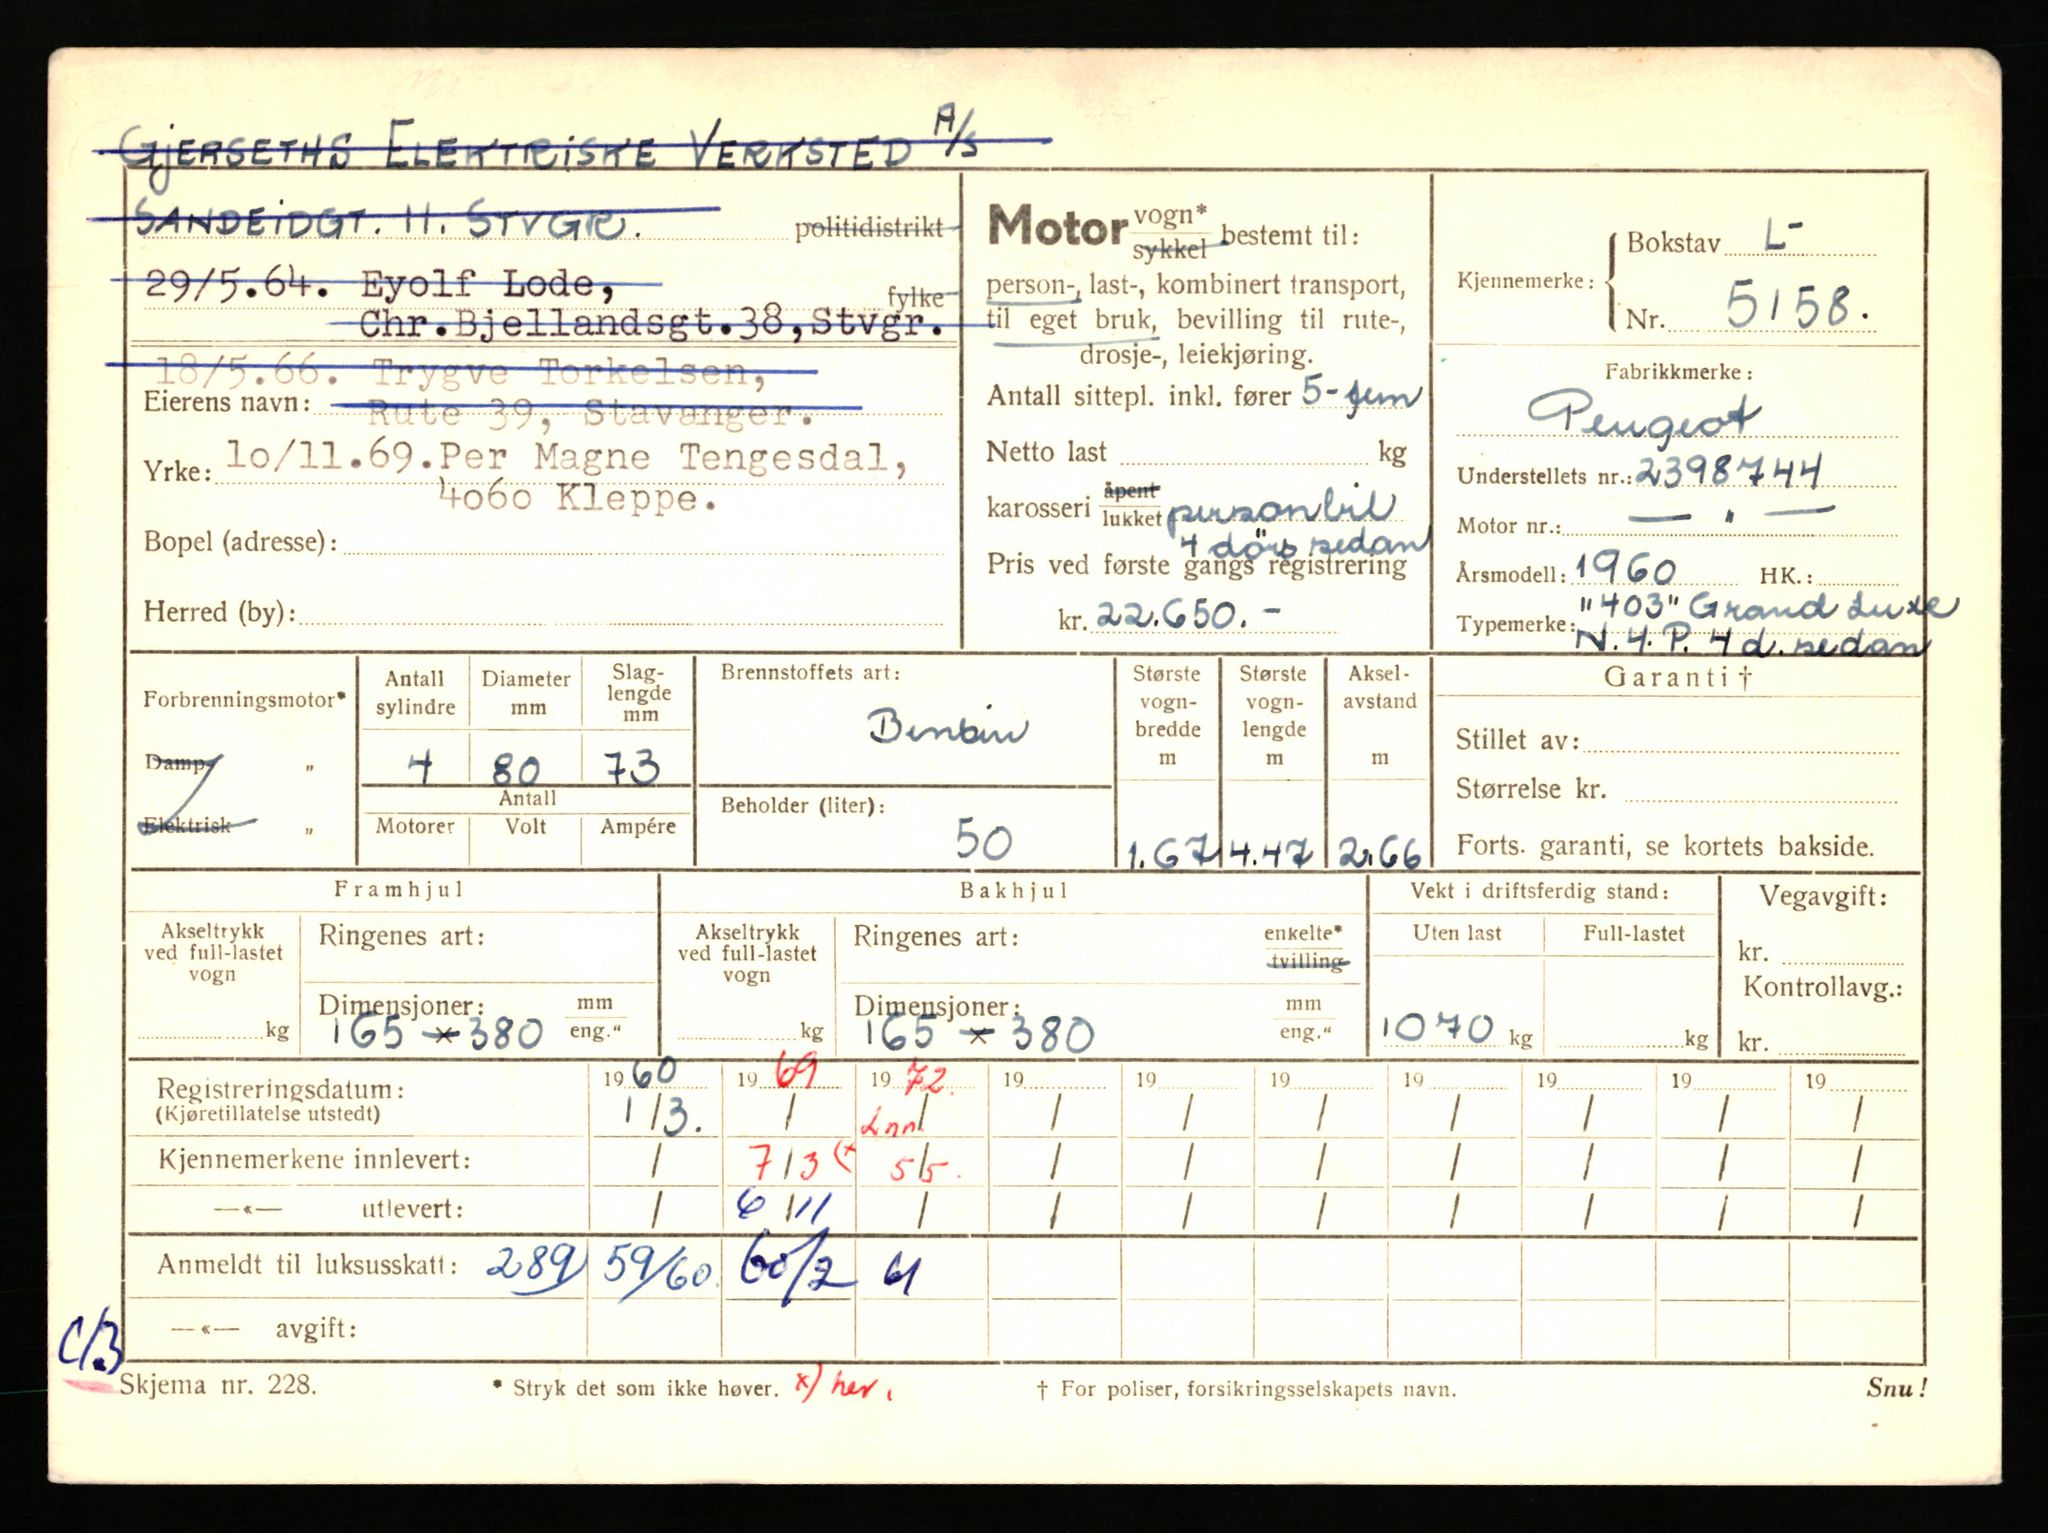 GJERSETHS ELEKTRISKE VERKSTED A/S
SANDEIDGT. 11. STVGR. politidistrikt
29/5.64. Eyolf Lode, fylke
Chr.Bjellandsgt.38,Stvgr.
18/5.66. Trygve Torkelsen,
Eierens navn: Rute 39, Stavanger.
Yrke: 1o/11.69.Per Magne Tengesdal,
4o6o Kleppe.
Bopel (adresse):
Herred (by):
Motor vogn* sykkel bestemt til:
person-, last-, kombinert transport,
til eget bruk, bevilling til rute-,
drosje-, leiekjøring.
Antall sittepl. inkl. fører 5-fem
Netto last kg
karosseri åpent lukket personbil
4 dörs sedan
Pris ved første gangs registrering
kr. 22.650.-
Kjennemerke: Bokstav L-
Nr. 5158.
Fabrikkmerke:
Peugeot
Understellets nr.: 2398744
Motor nr.: — " —
Årsmodell: 1960 HK.:
Typemerke: "403" Grand Luxe
N.4.P. 4 d. sedan
Forbrenningsmotor*
Damp- "
Elektrisk "
Antall sylindre Diameter mm Slag-lengde mm
4 80 73
Antall
Motorer Volt Ampére
Brennstoffets art:
Bensin
Beholder (liter):
50
Største vogn-bredde m Største vogn-lengde m Aksel-avstand m
1.67 4.47 2.66
Garanti †
Stillet av:
Størrelse kr.
Forts. garanti, se kortets bakside.
Framhjul
Akseltrykk ved full-lastet vogn
kg
Ringenes art:
Dimensjoner: mm eng."
165 x 380
Bakhjul
Akseltrykk ved full-lastet vogn
kg
Ringenes art: enkelte* tvilling
Dimensjoner: mm eng."
165 x 380
Vekt i driftsferdig stand:
Uten last Full-lastet
1070 kg kg
Vegavgift:
kr.
Kontrollavg.:
kr.
Registreringsdatum: 1960 1969 1972. 19 19 19 19 19 19 19
(Kjøretillatelse utstedt) 1/3. / / / / / / / / /
Kjennemerkene innlevert: / 7/3 (x 5/5. / / / / / / /
—«— utlevert: / 6/11 / / / / / / / /
Anmeldt til luksusskatt: 289 59/60. 60/2 61
—«— avgift:
C/3
Skjema nr. 228. * Stryk det som ikke høver. x) her. † For poliser, forsikringsselskapets navn. Snu!